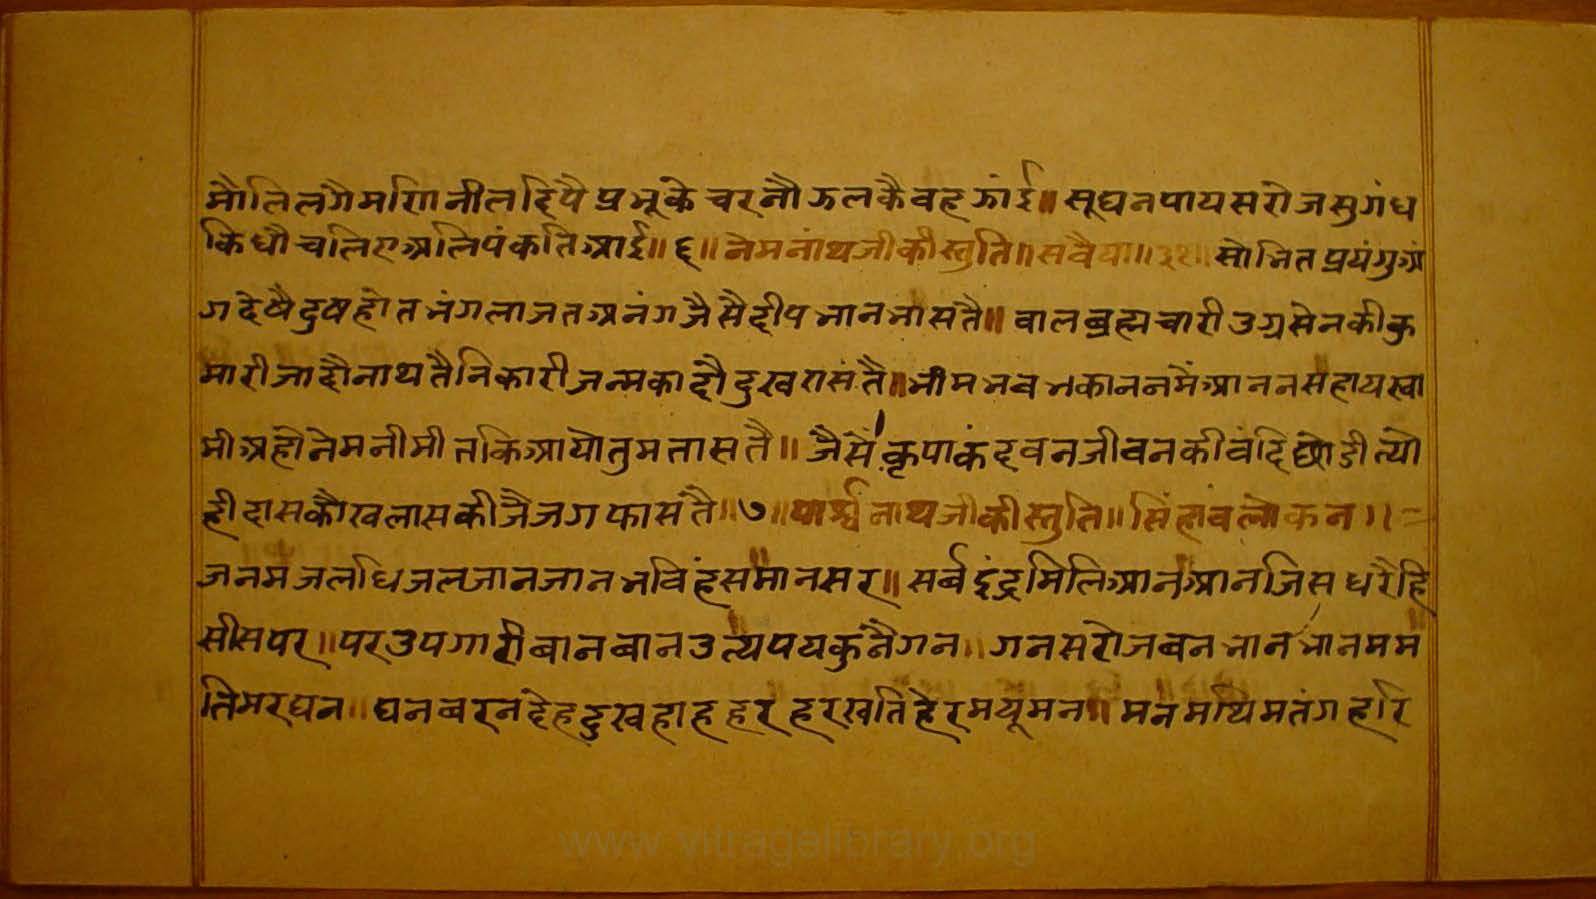 मौलिलगैमणिनीलदिपैप्रभूके चरनौऊलकैवहऊांई॥ सूघनपायसरोजसुगंध
किधौचलिएअलिपंकतिआई॥६॥नेमनांथजीकीस्तुति॥सवैया॥३१॥सोभितप्रयंगुअं
गदेषैदुषहोतभंगलाजतअनंगजैसैदीपभानभासतै॥ वालब्रह्मचारीउग्रसेनकीकु
मारीजादौनाथतैनिकारीजन्मकादौदुखरासतै॥भीमभवभकाननमैंआननसहायस्वा
मीअहोनेमनीमीतकिआयोतुमतासतै॥ जैसेंकृपाकंदवनजीवनकीवंदिछोडीत्यो
हीदासकौखलासकीजैजगफासतै॥७॥पार्श्वनाथजीकीस्तुति॥सिंहावलोकन॥
जनमजलधिजलजानजानभविहंसमानसर॥ सर्बइंद्रमिलिआनआनजिसधरैहि
सीसपर॥परउपगारीबानबानउत्थपयकुनैगन॥ गनसरोजबनभानभानमम
तिमरघन॥ घनबरनदेहदुखहाहहरहरखतिहेरमयूमन॥ मनमथिमतंगहरि
www.vitragelibrary.org